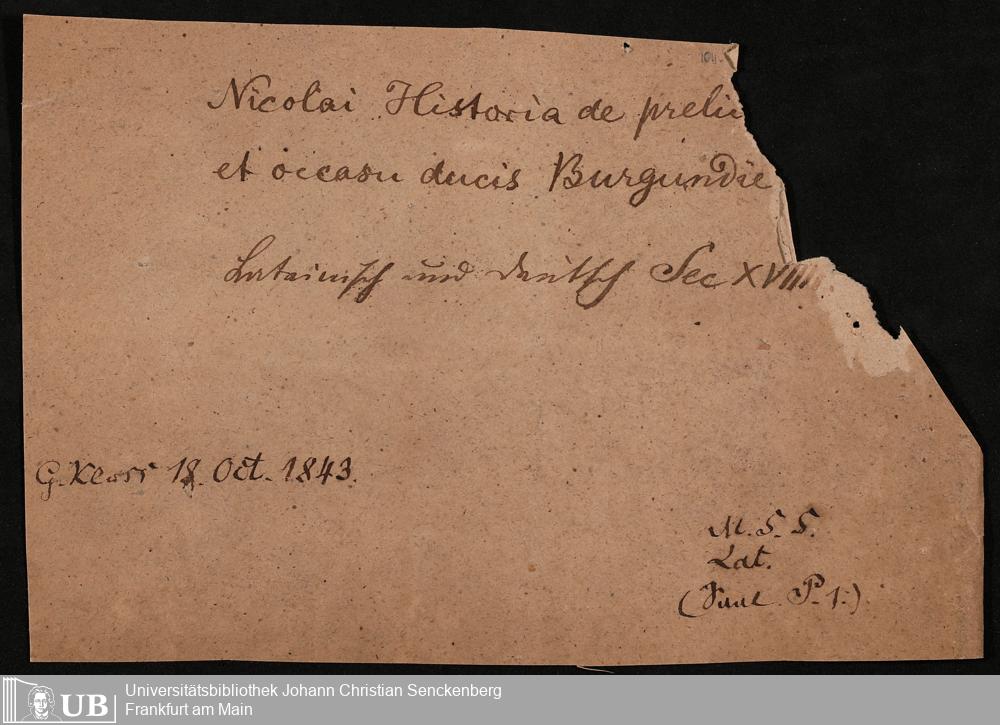 Nicolai Historia de preliis
et occasu ducis Burgundie
Lateinisch und deutsch Sec XVIII.
G. Kloss 18. Oct. 1843.
M. S. S.
Lat.
P. 1.)
UB
Universitätsbibliothek Johann Christian Senckenberg
Frankfurt am Main